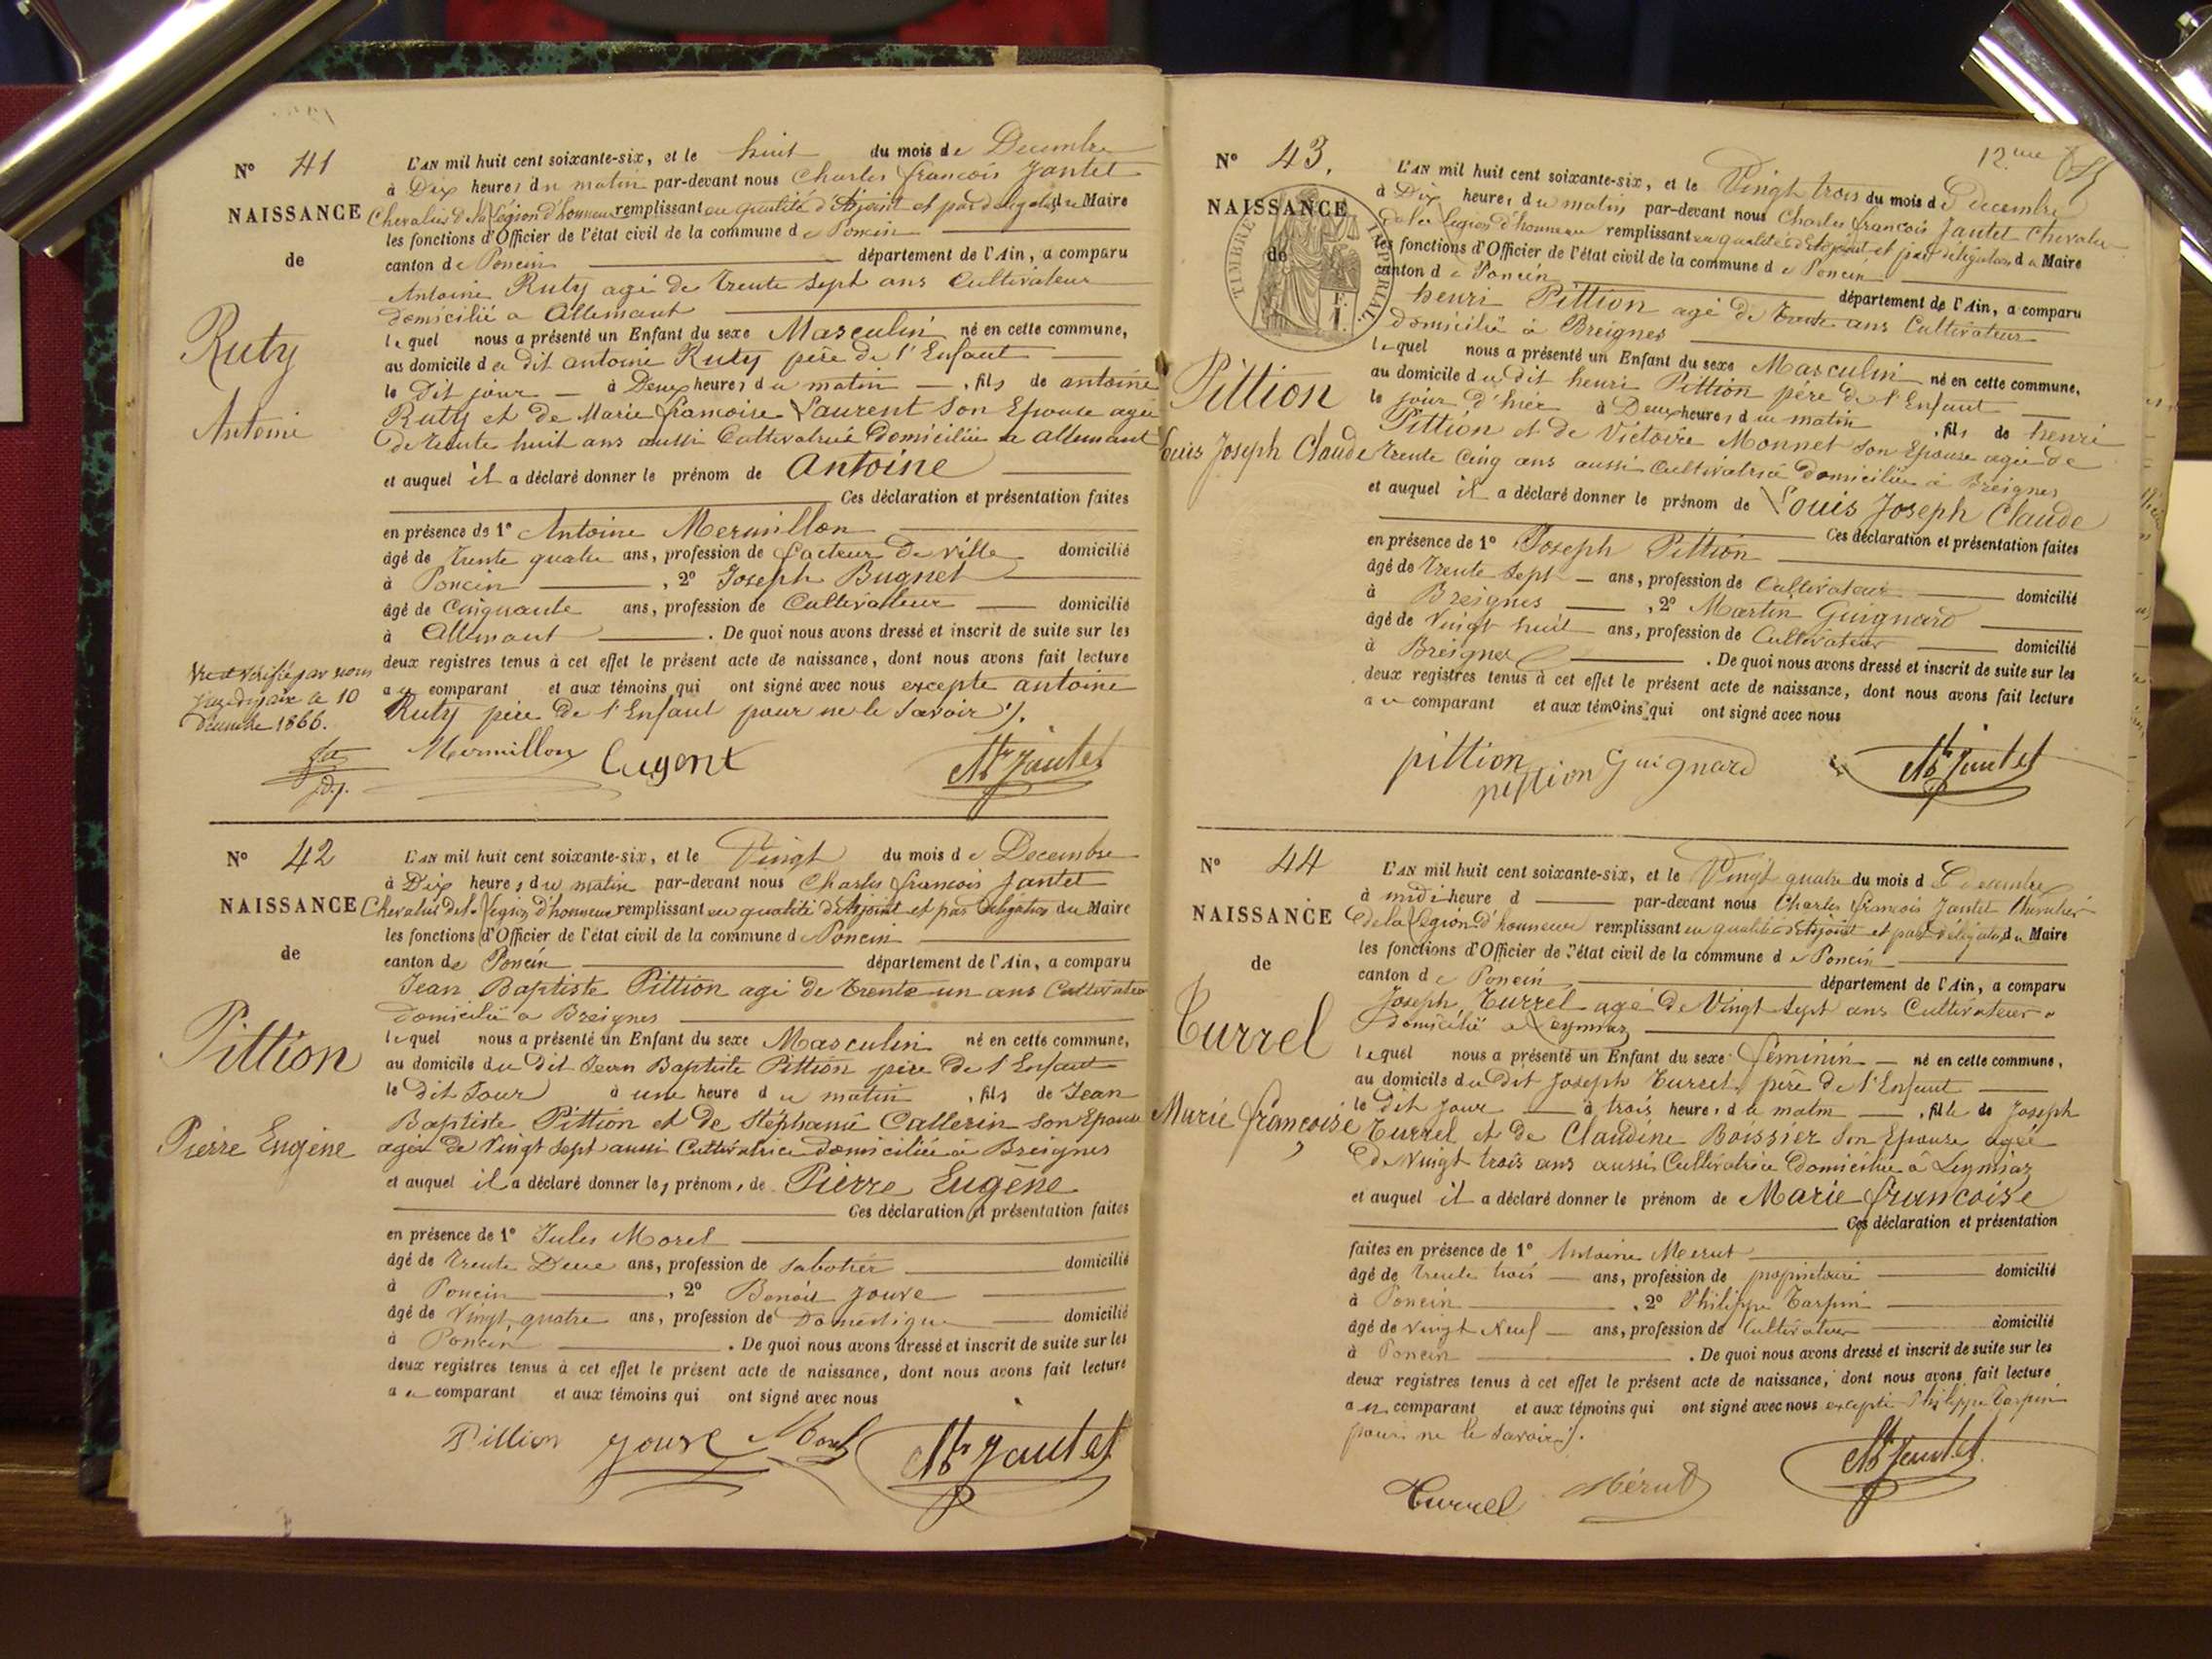 N° 41
NAISSANCE
de
Ruty
Antoine
L'AN mil huit cent soixante-six, et le huit du mois de Decembre
à Dix heures du matin par-devant nous Charles françois Jantet
Chevalier de la Légion d'honneur remplissant en qualité d'Adjoint et par délégation du Maire
les fonctions d'Officier de l'état civil de la commune de Poncin
canton de Poncin département de l'Ain, a comparu
Antoine Ruty agé de trente sept ans Cultivateur
domicilié a Allemant
lequel nous a présenté un Enfant du sexe Masculin né en cette commune,
au domicile du dit antoine Ruty père de l'Enfant
le dit jour à Deux heures du matin, fils de antoine
Ruty et de Marie francoise Laurent son Epouse agée
de trente huit ans aussi Cultivatrice Domiciliée a allemant
et auquel il a déclaré donner le prénom de Antoine
Ces déclaration et présentation faites
en présence de 1° Antoine Mermillon
âgé de trente quatre ans, profession de facteur de ville domicilié
à Poncin, 2° Joseph Bugnet
âgé de Cinquante ans, profession de Cultivateur domicilié
à Allemant. De quoi nous avons dressé et inscrit de suite sur les
deux registres tenus à cet effet le présent acte de naissance, dont nous avons fait lecture
au comparant et aux témoins qui ont signé avec nous excepte antoine
Ruty père de l'Enfant pour ne le savoir ./.
Vu et vérifié par nous
juge de paix le 10
Décembre 1866.
Mermillon
Jantet
N° 42
NAISSANCE
de
Pittion
Pierre Eugène
L'AN mil huit cent soixante-six, et le Vingt du mois de Decembre
à Dix heures du matin par-devant nous Charles francois Jantet
Chevalier de la Légion d'honneur remplissant en qualité d'Adjoint et par délégation du Maire
les fonctions d'Officier de l'état civil de la commune de Poncin
canton de Poncin département de l'Ain, a comparu
Jean Baptiste Pittion agé de trente un ans Cultivateur
domicilié a Breignes
lequel nous a présenté un Enfant du sexe Masculin né en cette commune,
au domicile du dit Jean Baptiste Pittion père de l'Enfant
le dit Jour à une heure du matin, fils de Jean
Baptiste Pittion et de Stéphanie Callerin son Epouse
agée de Vingt sept aussi Cultivatrice domiciliée à Breignes
et auquel il a déclaré donner les prénoms de Pierre Eugène
Ces déclaration et présentation faites
en présence de 1° Jules Morel
âgé de trente Deux ans, profession de sabotier domicilié
à Poncin, 2° Benoit Jouve
âgé de Vingt quatre ans, profession de Domestique domicilié
à Poncin. De quoi nous avons dressé et inscrit de suite sur les
deux registres tenus à cet effet le présent acte de naissance, dont nous avons fait lecture
au comparant et aux témoins qui ont signé avec nous
Pittion Jouve Morel Jantet
12eme
N° 43.
NAISSANCE
de
TIMBRE IMPERIAL
Pittion
Louis Joseph Claude
L'AN mil huit cent soixante-six, et le Vingt trois du mois de Decembre
à Dix heures du matin par-devant nous Charles françois Jantet Chevalier
de la Legion d'honneur remplissant en qualité d'Adjoint et par délégation du Maire
les fonctions d'Officier de l'état civil de la commune de Poncin
canton de Poncin département de l'Ain, a comparu
henri Pittion agé de trente ans Cultivateur
domicilié à Breignes
lequel nous a présenté un Enfant du sexe Masculin né en cette commune,
au domicile du dit henri Pittion père de l'Enfant
le jour d'hier à Deux heures du matin, fils de henri
Pittion et de Victoire Monnet son Epouse agée de
trente Cinq ans aussi Cultivatrice domiciliée à Breignes
et auquel il a déclaré donner le prénom de Louis Joseph Claude
Ces déclaration et présentation faites
en présence de 1° Joseph Pittion
âgé de trente sept ans, profession de Cultivateur domicilié
à Breignes, 2° Martin Guignard
âgé de Vingt huit ans, profession de Cultivateur domicilié
à Breignes. De quoi nous avons dressé et inscrit de suite sur les
deux registres tenus à cet effet le présent acte de naissance, dont nous avons fait lecture
au comparant et aux témoins qui ont signé avec nous
pittion
pittion Guignard Jantet
N° 44
NAISSANCE
de
Turrel
Marie françoise
L'AN mil huit cent soixante-six, et le Vingt quatre du mois de Decembre
à midi heure d par-devant nous Charles françois Jantet Chevalier
de la Légion d'honneur remplissant en qualité d'Adjoint et par délégation du Maire
les fonctions d'Officier de l'état civil de la commune de Poncin
canton de Poncin département de l'Ain, a comparu
Joseph Turrel agé de Vingt sept ans Cultivateur
domicilié a Leymiaz
lequel nous a présenté un Enfant du sexe féminin né en cette commune,
au domicile du Dit Joseph Turrel père de l'Enfant
le dit jour à trois heures du matin, fille de Joseph
Turrel et de Claudine Boissier son Epouse agée
de Vingt trois ans aussi Cultivatrice Domiciliée à Leymiaz
et auquel il a déclaré donner le prénom de Marie francoise
Ces déclaration et présentation
faites en présence de 1° Antoine Merut
âgé de trente trois ans, profession de propriétaire domicilié
à Poncin, 2° Philippe Tarpin
âgé de vingt Neuf ans, profession de Cultivateur domicilié
à Poncin. De quoi nous avons dressé et inscrit de suite sur les
deux registres tenus à cet effet le présent acte de naissance, dont nous avons fait lecture
au comparant et aux témoins qui ont signé avec nous excepté Philippe Tarpin
pour ne le savoir ./.
Turrel Mérut Jantet